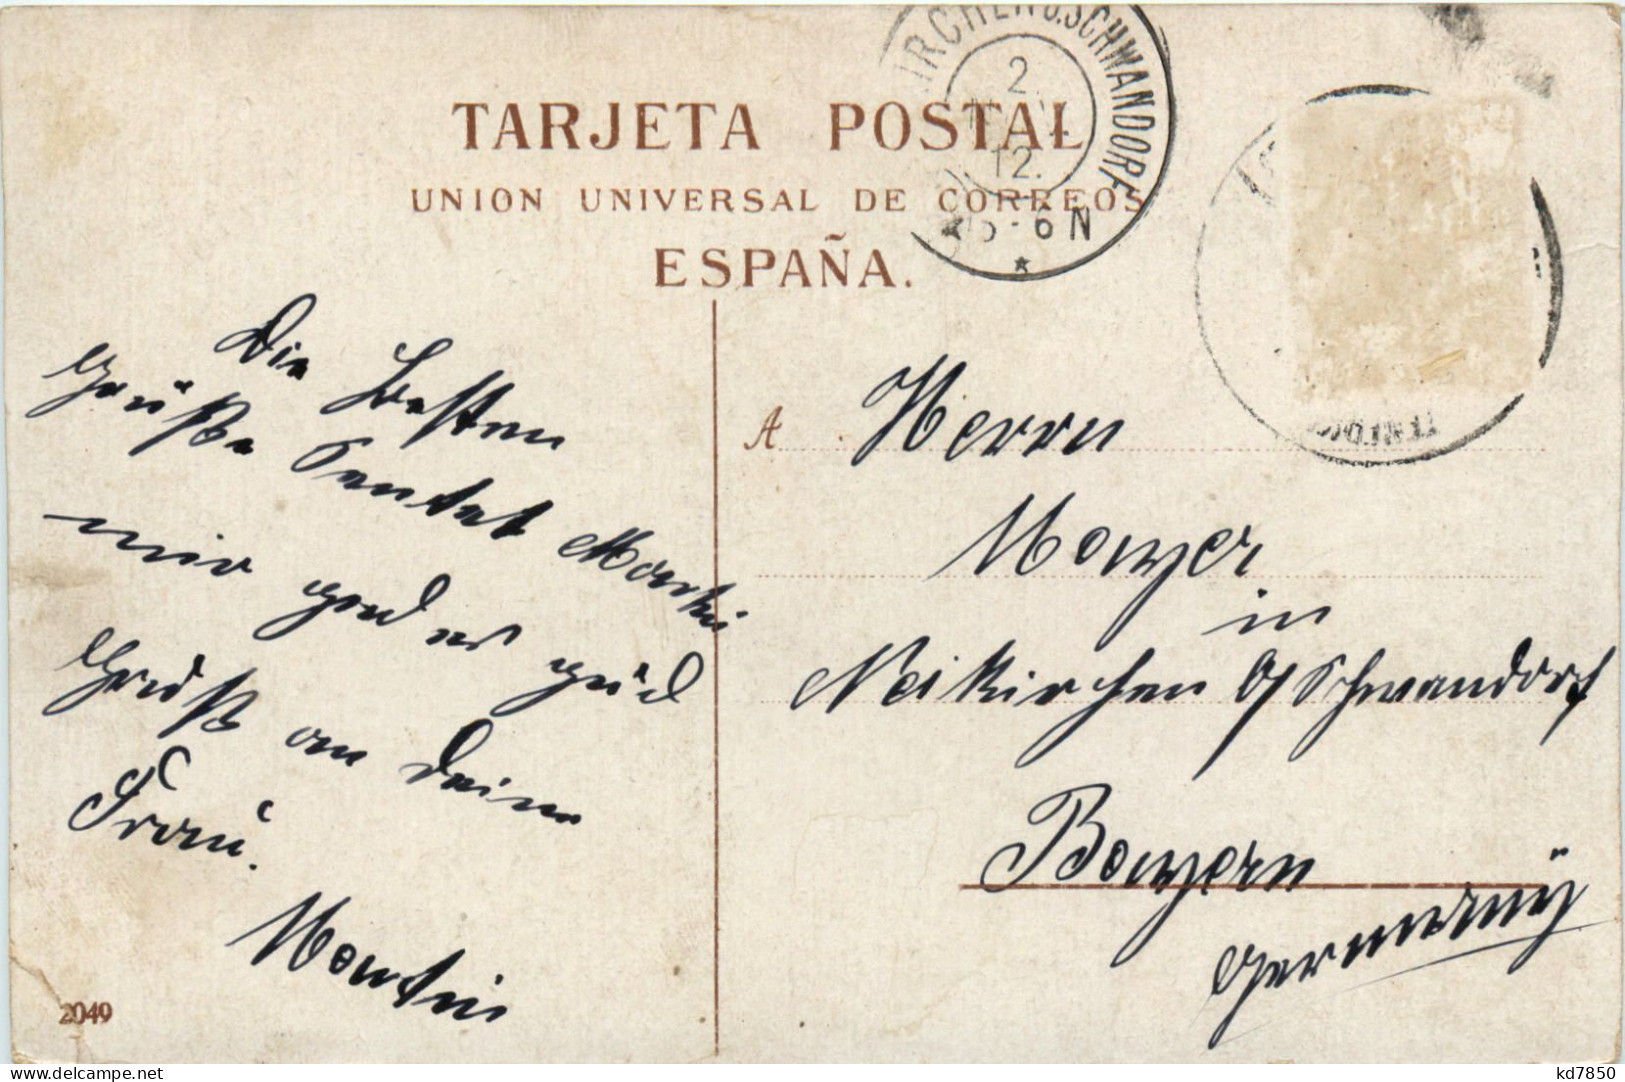 TARJETA POSTAL
UNION UNIVERSAL DE CORREOS
ESPAÑA.
IRCHEN B.SCHWANDORF
2.
12.
5-6N
Die besten
Grüße sendet Martin
mir gehd es gud
Gruß an deine
Frau.
Martin
2049
A Herrn
Mayer
in
Neikirchen b/Schwandorf
Bayern
Germany
delcampe.net
kd7850